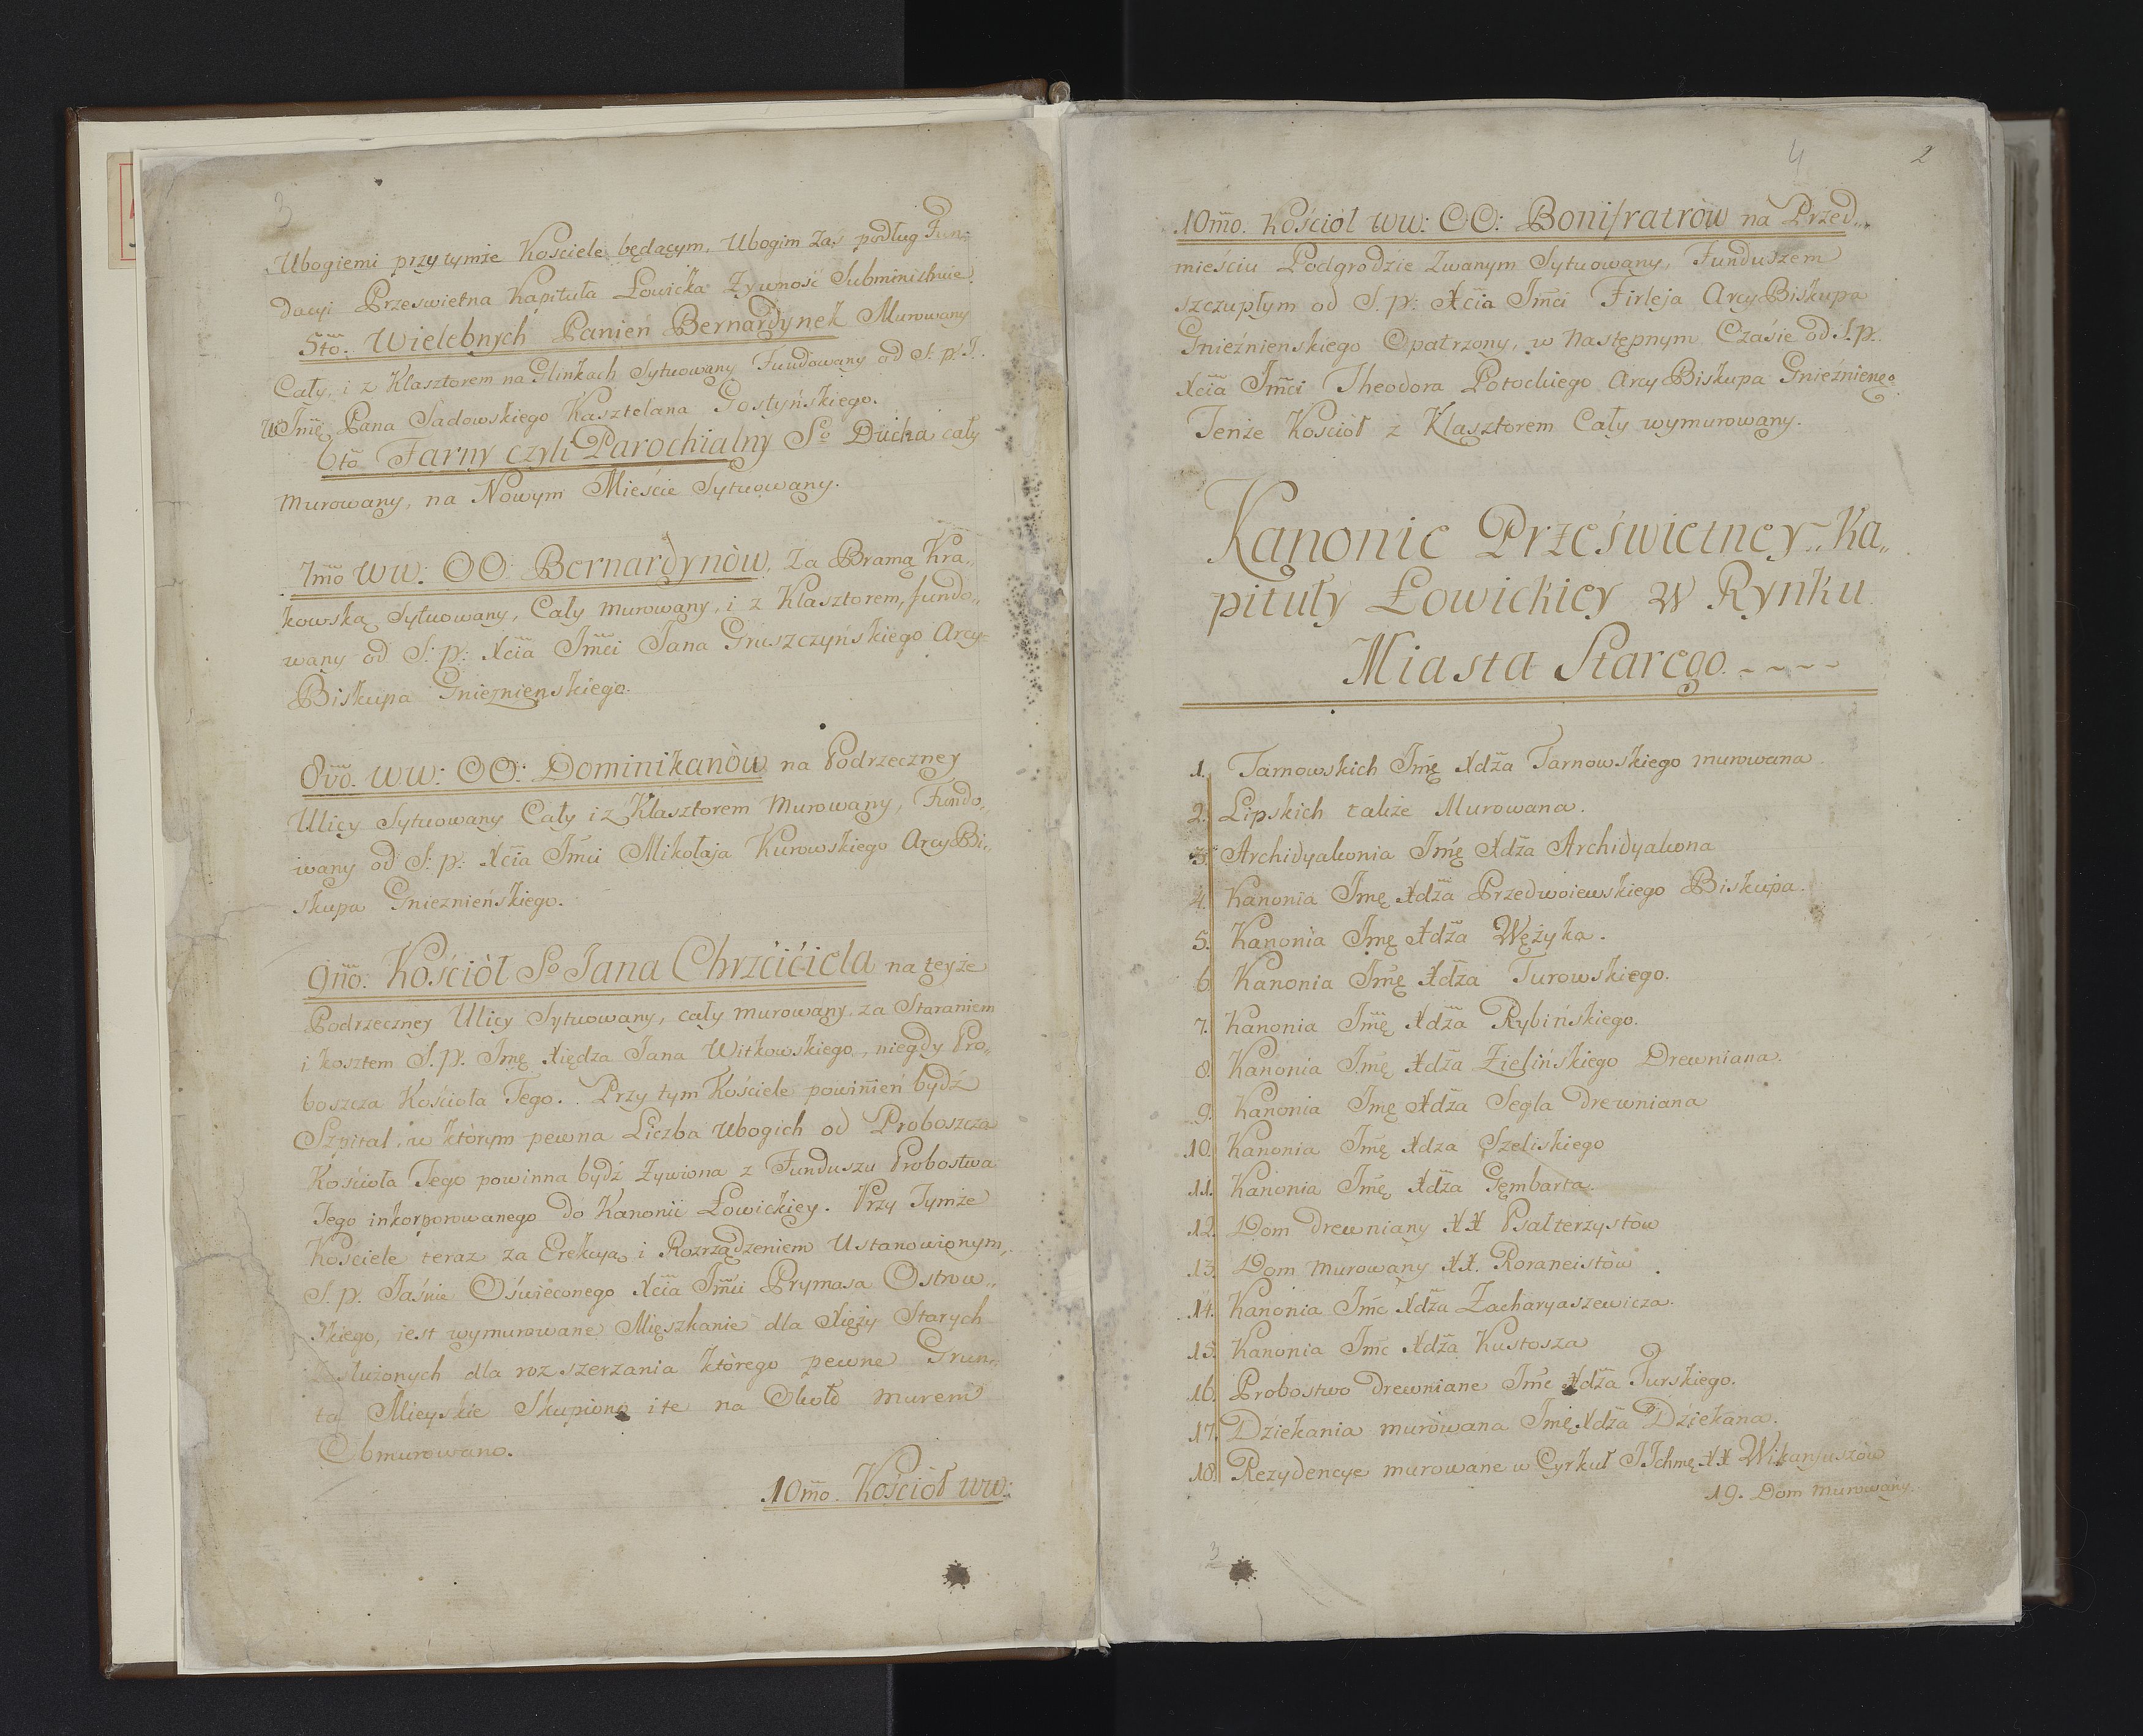 3
Ubogiemi przy tymże Kosciele będącym, Ubogim Zaś podług Fun„
dacyi Przeswietna Kapituła Łowicka Zywnosć Subministruie.
5to. Wielebnych Panien Bernardynek Murowany
Cały, i z Klasztorem na Glinkach Sytuowany Fundowany od S. p. J.
W Jmę Pana Sadowskiego Kasztelana Gostyńskiego.
6to Farny czyli Parochialny So Ducha cały
murowany, na Nowym Mieście Sytuowany.
7mo WW: OO: Bernardynòw, Za Bramą Kra„
kowską Sytuowany, Cały murowany, i z Klasztorem, fundo„
wany od S: p: Xcia Jmci Jana Gruszczyńskiego Arcy=
Biskupa Gnieznienskiego.
8vo. WW: OO: Dominikanòw na Podrzeczney
Ulicy Sytuowany Cały i z Klasztorem Murowany, Fundo„
wany od S: p: Xcia Jmci Mikołaja Kurowskiego Arcy Bi„
skupa Gniezniеńskiego.
9no. Kościòł So Jana Chrzćićiela na teyże
Podrzeczney Ulicy Sytuowany, cały murowany, za Staraniem
i kosztem S. p. Jmę Xiędza Jana Witkowskiego, niegdy Pro„
boszcza Kościoła Tego. Przy tym Kościele powinien bydź
Szpital, w ktòrym pewna Liczba Ubogich od Proboszcza
Kościoła Tego powinna bydź Zywiona z Funduszu Probostwa
Tego inkorporowanego do Kanonii Łowickiey. Przy Tymże
Kościele teraz za Erekcyą i Rozrządzeniem Ustanowionym,
S. p. Jaśnie Oświeconego Xcia Jmci Prymasa Ostrow„
skiego, iest wymurowane Mięszkanie dla Xięży Starych
służonych dla rozszerzania ktòrego pewne Grun„
ta Mieyskie Skupiono i te na Około murem
Obmurowano.
10mo. Kościòł WW:
4 2
10mo. Kościòł WW: OO: Bonifratròw na Przed„
mieściu Podgrodzie Zwanym Sytuowany, Funduszem
szczupłym od S. p: Xcia Jmci Firleja Arcy Biskupa
Gnieźnienskiego Opatrzony, w Następnym Czaśie od S. p.
Xcia Jmci Theodora Potockiego Arcy Biskupa Gnieźnieng:
Tenże Kosciòł z Klasztorem Cały wymurowany.
Kanonie Prześwietney Ka„
pituły Łowickiey w Rynku
Miasta Starego.
1. Tarnowskich Jmę Xdza Tarnowskiego murowana
2. Lipskich także Murowana.
3. Archidyakonia Jmę Xdza Archidyakona
4. Kanonia Jmę Xdza Przedwoiewskiego Biskupa.
5. Kanonia Jmę Xdza Wężyka.
6. Kanonia Jmę Xdza Turowskiego.
7. Kanonia Jmę Xdza Rybińskiego.
8. Kanonia Jmę Xdza Zielińskiego Drewniana.
9. Kanonia Jmę Xdza Segla drewniana
10. Kanonia Jmę Xdza Szeliskiego
11. Kanonia Jmę Xdza Gęmbarta.
12. Dom drewniany XX Psalterzystòw
13. Dom Murowany XX. Roraneistòw.
14. Kanonia Jmc Xdza Zacharyaszewicza.
15. Kanonia Jmc Xdza Kustosza
16. Probostwo drewniane Jmc Xdza Turskiego.
17. Dziekania murowana Jmę Xdza Dziekana.
18. Rezydencye murowane w Cyrkuł JJchmę XX Wikaryuszòw
19. Dom murowany.
3